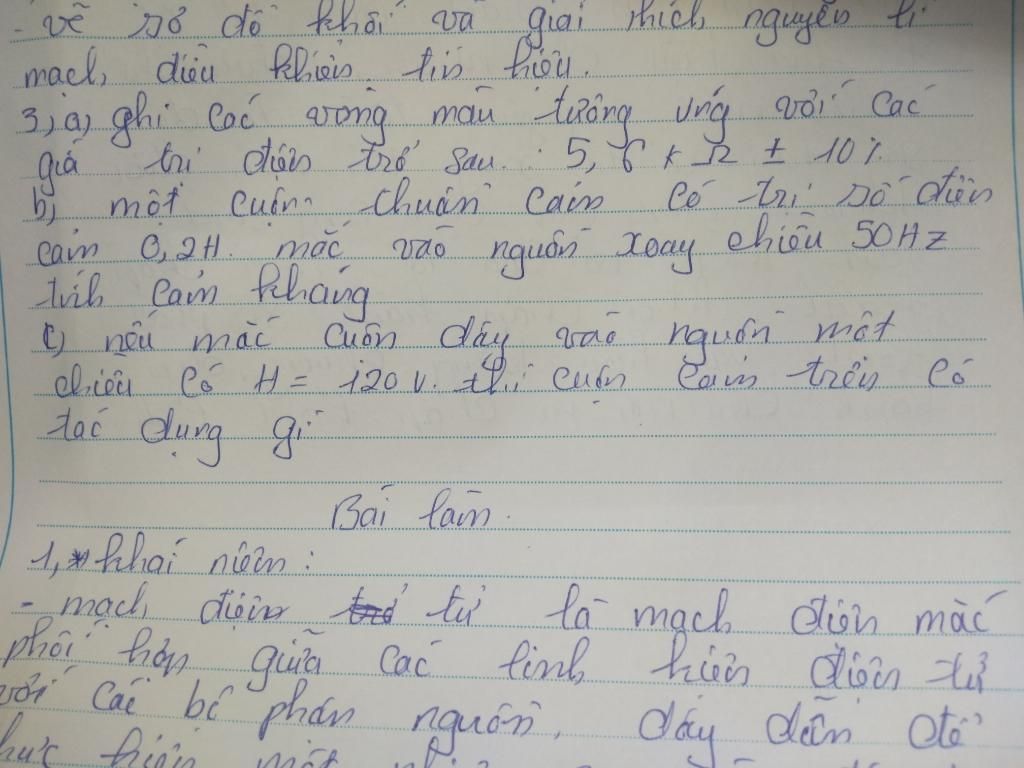 - vẽ sơ đồ khối và giải thích nguyên lí
mạch điều khiển tín hiệu.
3, a, ghi các vòng màu tương ứng với các
giá trị điện trở sau : 5,6 k Ω ± 10%
b, một cuộn thuần cảm có trị số điện
cảm 0,2H. mắc vào nguồn xoay chiều 50Hz
tính cảm kháng
c) nếu mắc cuộn dây vào nguồn một
chiều có H = 120 v. thì cuộn cảm trên có
tác dụng gì
Bài làm.
1, * khái niệm :
- mạch điện tử là mạch điện mắc
phối hợp giữa các linh kiện điện tử
với các bộ phận nguồn, dây dẫn để